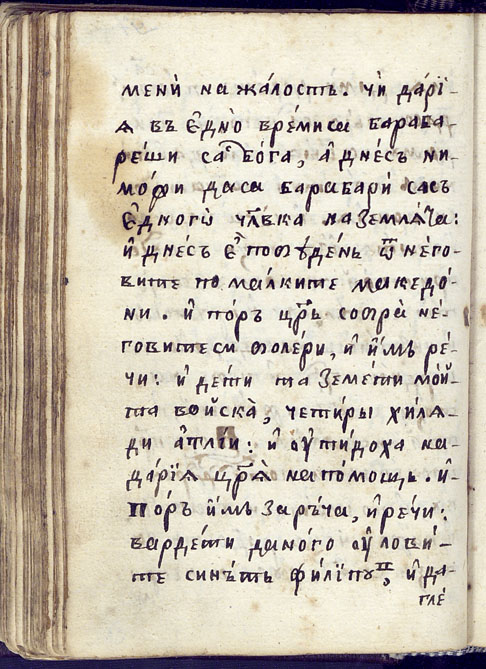 менѝ на жа́лость. чѝ да́рїѐ-
ѧ въ є҆дно̀ вре́миса бараба-
ре́ши са бо́га, а҆ дне́съ ни-
мо́фи даса барабари́ сасъ
є҆дного̀ чл҃вка на землѧ́ча:
и҆ дне́съ є҆ поѹде́нь ѿ не́го-
вите по малките македо́-
ни. и҆ по́ръ цр҃ь со
говитеси и҆ и҆́мъ ре́-
чи: и҆ де́ти та земе́ти мо́й-
та войска̀, четиры хилѧ-
ди а҆плі́и: и҆ ѹ҆тидоха на
да́рїѧ цр҃ѧ̀ на по́мощь. и҆
по́ръ и҆́мъ заръ́ча, и҆ ре́чи:
варде́ти даного ѹ҆лови́-
те синътъ фили́пѹ, и҆ да-
гле́